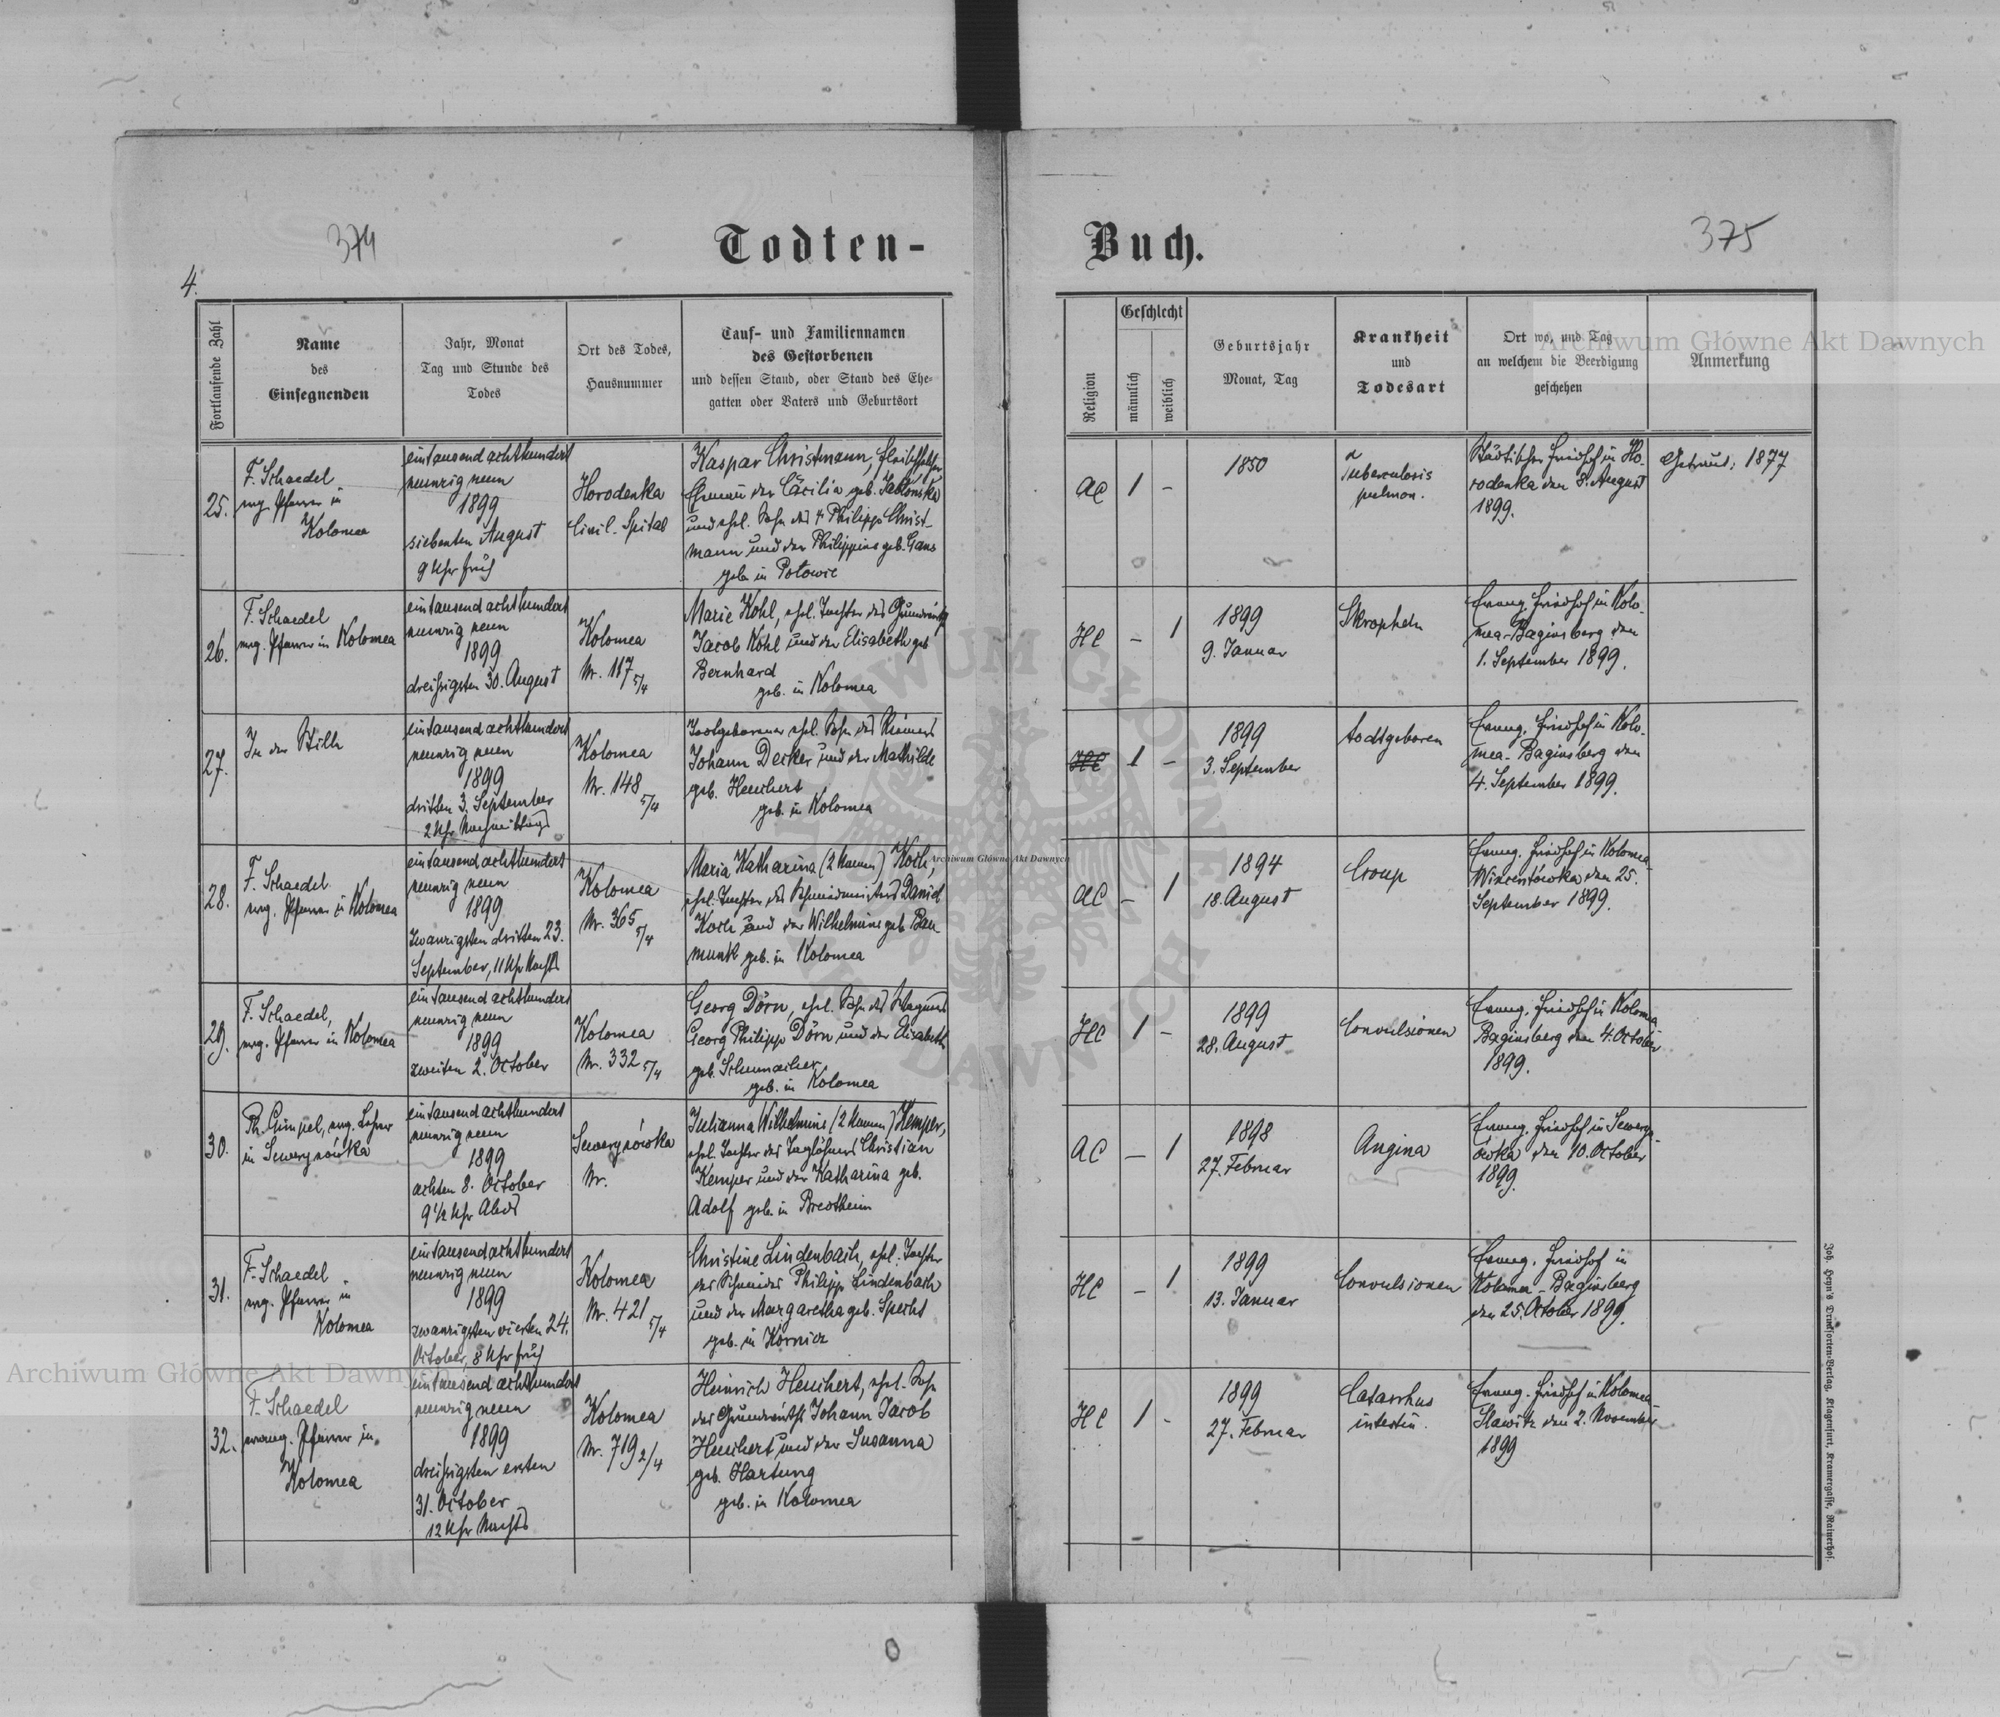 374
Todten-
4.
Fortlaufende Zahl
Name
des
Einsegnenden
Jahr, Monat
Tag und Stunde des
Todes
Ort des Todes,
Hausnummer
Tauf- und Familiennamen
des Gestorbenen
und dessen Stand, oder Stand des Ehe-
gatten oder Vaters und Geburtsort
25.
F. Schaedel
evg. Pfarrer in
Kolomea
eintausend achthundert
neunzig neun
1899
siebenten August
9 Uhr früh
Horodenka
Civil-Spital
Kaspar Christmann,
Ehemann der Cäcilia geb. Jablonska
und ehel. Sohn des + Philipp Christ-
mann und der Philippine geb. Gans
geb. in
26.
F. Schaedel
evg. Pfarrer in Kolomea
eintausend achthundert
neunzig neun
1899
dreißigsten 30. August
Kolomea
Nr. 117 5/4
Marie Kohl, ehel. Tochter des Grundwirts
Jacob Kohl und der Elisabeth geb
Bernhard
geb. in Kolomea
27.
In der Stille
eintausend achthundert
neunzig neun
1899
dritten 3. September
2 Uhr Nachmittags
Kolomea
Nr. 148 5/4
Todtgeborener ehel. Sohn des Riemers
Johann Decker und der Mathilde
geb. Heuchert
geb. in Kolomea
28.
F. Schaedel
evg. Pfarrer in Kolomea
eintausend achthundert
neunzig neun
1899
zwanzigsten dritten 23.
September, 11 Uhr Nachts
Kolomea
Nr. 365 5/4
Maria Katharina (2 Namen) Koch,
ehel. Tochter des Schmiedmeisters Daniel
Koch und der Wilhelmine geb. Bau
munk geb. in Kolomea
29.
F. Schaedel,
evg. Pfarrer in Kolomea
eintausend achthundert
neunzig neun
1899
zweiten 2. October
Kolomea
Nr. 332 5/4
Georg Dörn, ehel. Sohn des Wagners
Georg Philipp Dörn und der Elisabeth
geb. Schumacher
geb. in Kolomea
30.
Ph. Gimpel, evg. Lehrer
in Sewerynówka
eintausend achthundert
neunzig neun
1899
achten 8. October
9 1/2 Uhr Abds
Sewerynówka
Nr.
Julianna Wilhelmine (2 Namen) Kemper,
ehel. Tochter des Taglöhners Christian
Kemper und der Katharina geb.
Adolf geb. in Bredtheim
31.
F. Schaedel
evg. Pfarrer in
Kolomea
eintausend achthundert
neunzig neun
1899
zwanzigsten vierten 24.
October, 8 Uhr früh
Kolomea
Nr. 421 5/4
Christine Lindenbach, ehel. Tochter
des Schneider Philipp Lindenbach
und der Margaretha geb. Specht
geb. in Kornicz
32.
F. Schaedel
evang. Pfarrer in
Kolomea
eintausend achthundert
neunzig neun
1899
dreißigsten ersten
31. October
12 Uhr Nachts
Kolomea
Nr. 719 2/4
Heinrich Heuchert, ehel. Sohn
des Grundwirths Johann Jacob
Heuchert und der Susanna
geb. Hartung
geb. in Kolomea
375
Buch.
Religion
Geschlecht
männlich
weiblich
Geburtsjahr
Monat, Tag
Krankheit
und
Todesart
Ort wo, und Tag
an welchem die Beerdigung
geschehen
Anmerkung
AC 1 –
1850
Tuberculosis
pulmon.
Städtischer Friedhof in Ho-
rodenka den 8. August
1899.
Getraut: 1877
HC – 1
1899
9. Januar
Skropheln
Evang. Friedhof in Kolo-
mea-Baginsberg den
1. September 1899.
HC 1 –
1899
3. September
todtgeboren
Evang. Friedhof in Kolo-
mea-Baginsberg den
4. September 1899.
AC – 1
1894
18. August
Croup
Evang. Friedhof in Kolomea-
Wincentówka den 25.
September 1899.
HC 1 –
1899
28. August
Convulsionen
Evang. Friedhof in Kolomea-
Baginsberg den 4. October
1899.
AC – 1
1898
27. Februar
Angina
Evang. Friedhof in Seweryn-
ówka den 10. October
1899.
HC – 1
1899
13. Januar
Convulsionen
Evang. Friedhof in
Kolomea-Baginsberg
den 25. October 1899.
HC 1 -
1899
27. Februar
Catarrhus
intestin.
Evang. Friedhof in Kolomea-
Slawitz den 2. November
1899
Joh. Heyn's Drucksorten-Verlag, Klagenfurt, Kramergasse, Rainerhof.
Archiwum Główne Akt Dawnych
Archiwum Główne Akt Dawnych
Archiwum Główne Akt Dawnych
ARCHIWUM GŁÓWNE AKT DAWNYCH